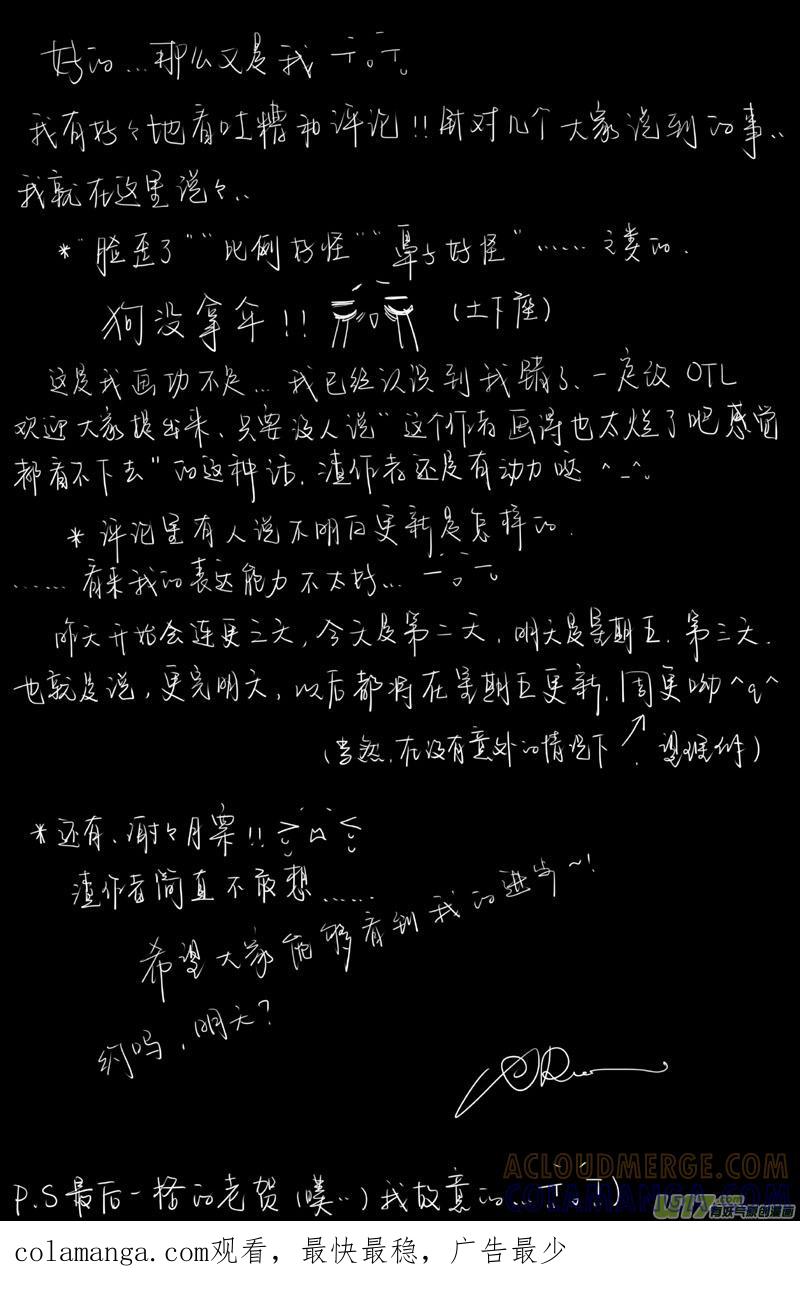 好的…那么又是我 亍。亍。
我有好々地看吐糟和评论!!针对几个大家说到的事..
我就在这里说々..
*"脸歪了""比例好怪""鼻子好怪"……之类的.
狗没拿伞!! (土下座)
这是我画功不足…我已经认识到我错了、一定改 OTL
欢迎大家提出来、只要没人说"这个作者画得也太烂了吧感觉
都看不下去"的这种话.渣作者还是有动力哒 ^_^。
*评论里有人说不明白更新是怎样的.
……看来我的表达能力不太好… 亍。亍。
昨天开始会连更三天,今天是第二天,明天是星期五.第三天.
也就是说,更完明天,以后都将在星期五更新.周更呦^q^
(当然.在没有意外的情况下↗.望理解)
*还有、谢々月票!!
渣作者简直不敢想……
希望大家能够看到我的进步~!
约吗,明天?
P.S最后一格的老贺(噗..)我故意的.
ACLOUDMERGE.COM
COLAMANGA.COM
U17 有妖气原创漫画
colamanga.com观看，最快最稳，广告最少